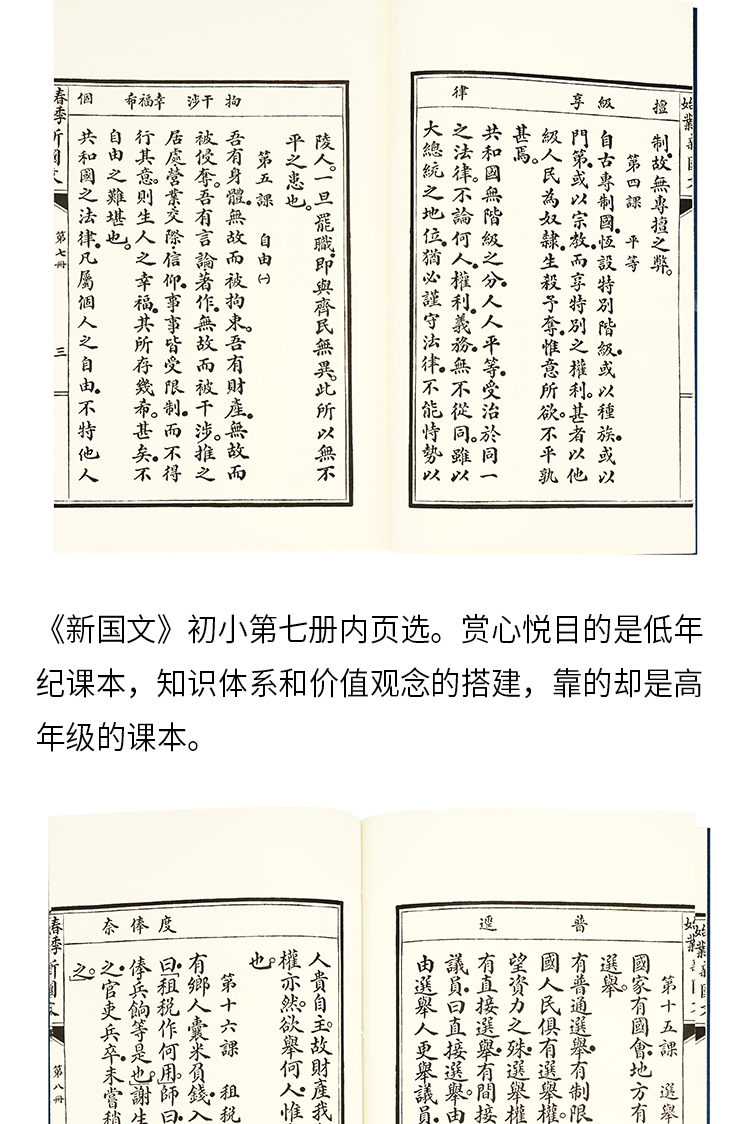 律
享
級
擅
制。故無專擅之弊。
第四課　平等
自古專制國。恆設特別階級。或以種族。或以
門第。或以宗教。而享特別之權利。甚者以他
級人民為奴隸。生殺予奪。惟意所欲。不平孰
甚焉。
共和國無階級之分。人人平等。受治於同一
之法律。不論何人。權利義務。無不從同。雖以
大總統之地位。猶必謹守法律。不能恃勢以
個
希福幸
涉干
拘
陵人。一旦罷職。即與齊民無異。此所以無不
平之患也。
第五課　自由㈠
吾有身體。無故而被拘束。吾有財產。無故而
被侵奪。吾有言論著作。無故而被干涉。推之
居處營業交際信仰。事事皆受限制。而不得
行其意。則生人之幸福。其所存幾希。甚矣不
自由之難堪也。
共和國之法律。凡屬個人之自由。不特他人
春季新國文
第七冊
三
《新国文》初小第七册内页选。赏心悦目的是低年
纪课本，知识体系和价值观念的搭建，靠的却是高
年级的课本。
遞
普
第十五課　選舉
國家有國會。地方有
選舉。
有普通選舉。有制限
國人民俱有選舉權。
望資力之殊。選舉權
有直接選舉。有間接
議員。曰直接選舉。由
由選舉人更舉議員。
奈
俸
度
人貴自主。故財產我
權亦然。欲舉何人。惟
也。
第十六課　租稅
有鄉人囊米負錢。入
曰。租稅作何用。師曰。
俸兵餉等是也。謝生
之官吏兵卒。未嘗稍
之。
春季新國文
第八冊